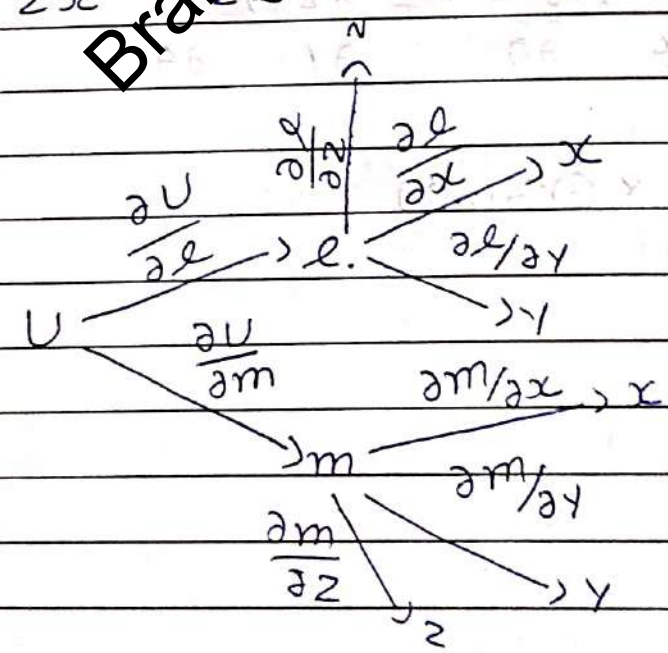 Bra
z
∂l/∂z
∂l/∂x
x
∂U/∂l
l.
∂l/∂y
y
U
∂U/∂m
∂m/∂x
x
m
∂m/∂y
∂m/∂z
y
z